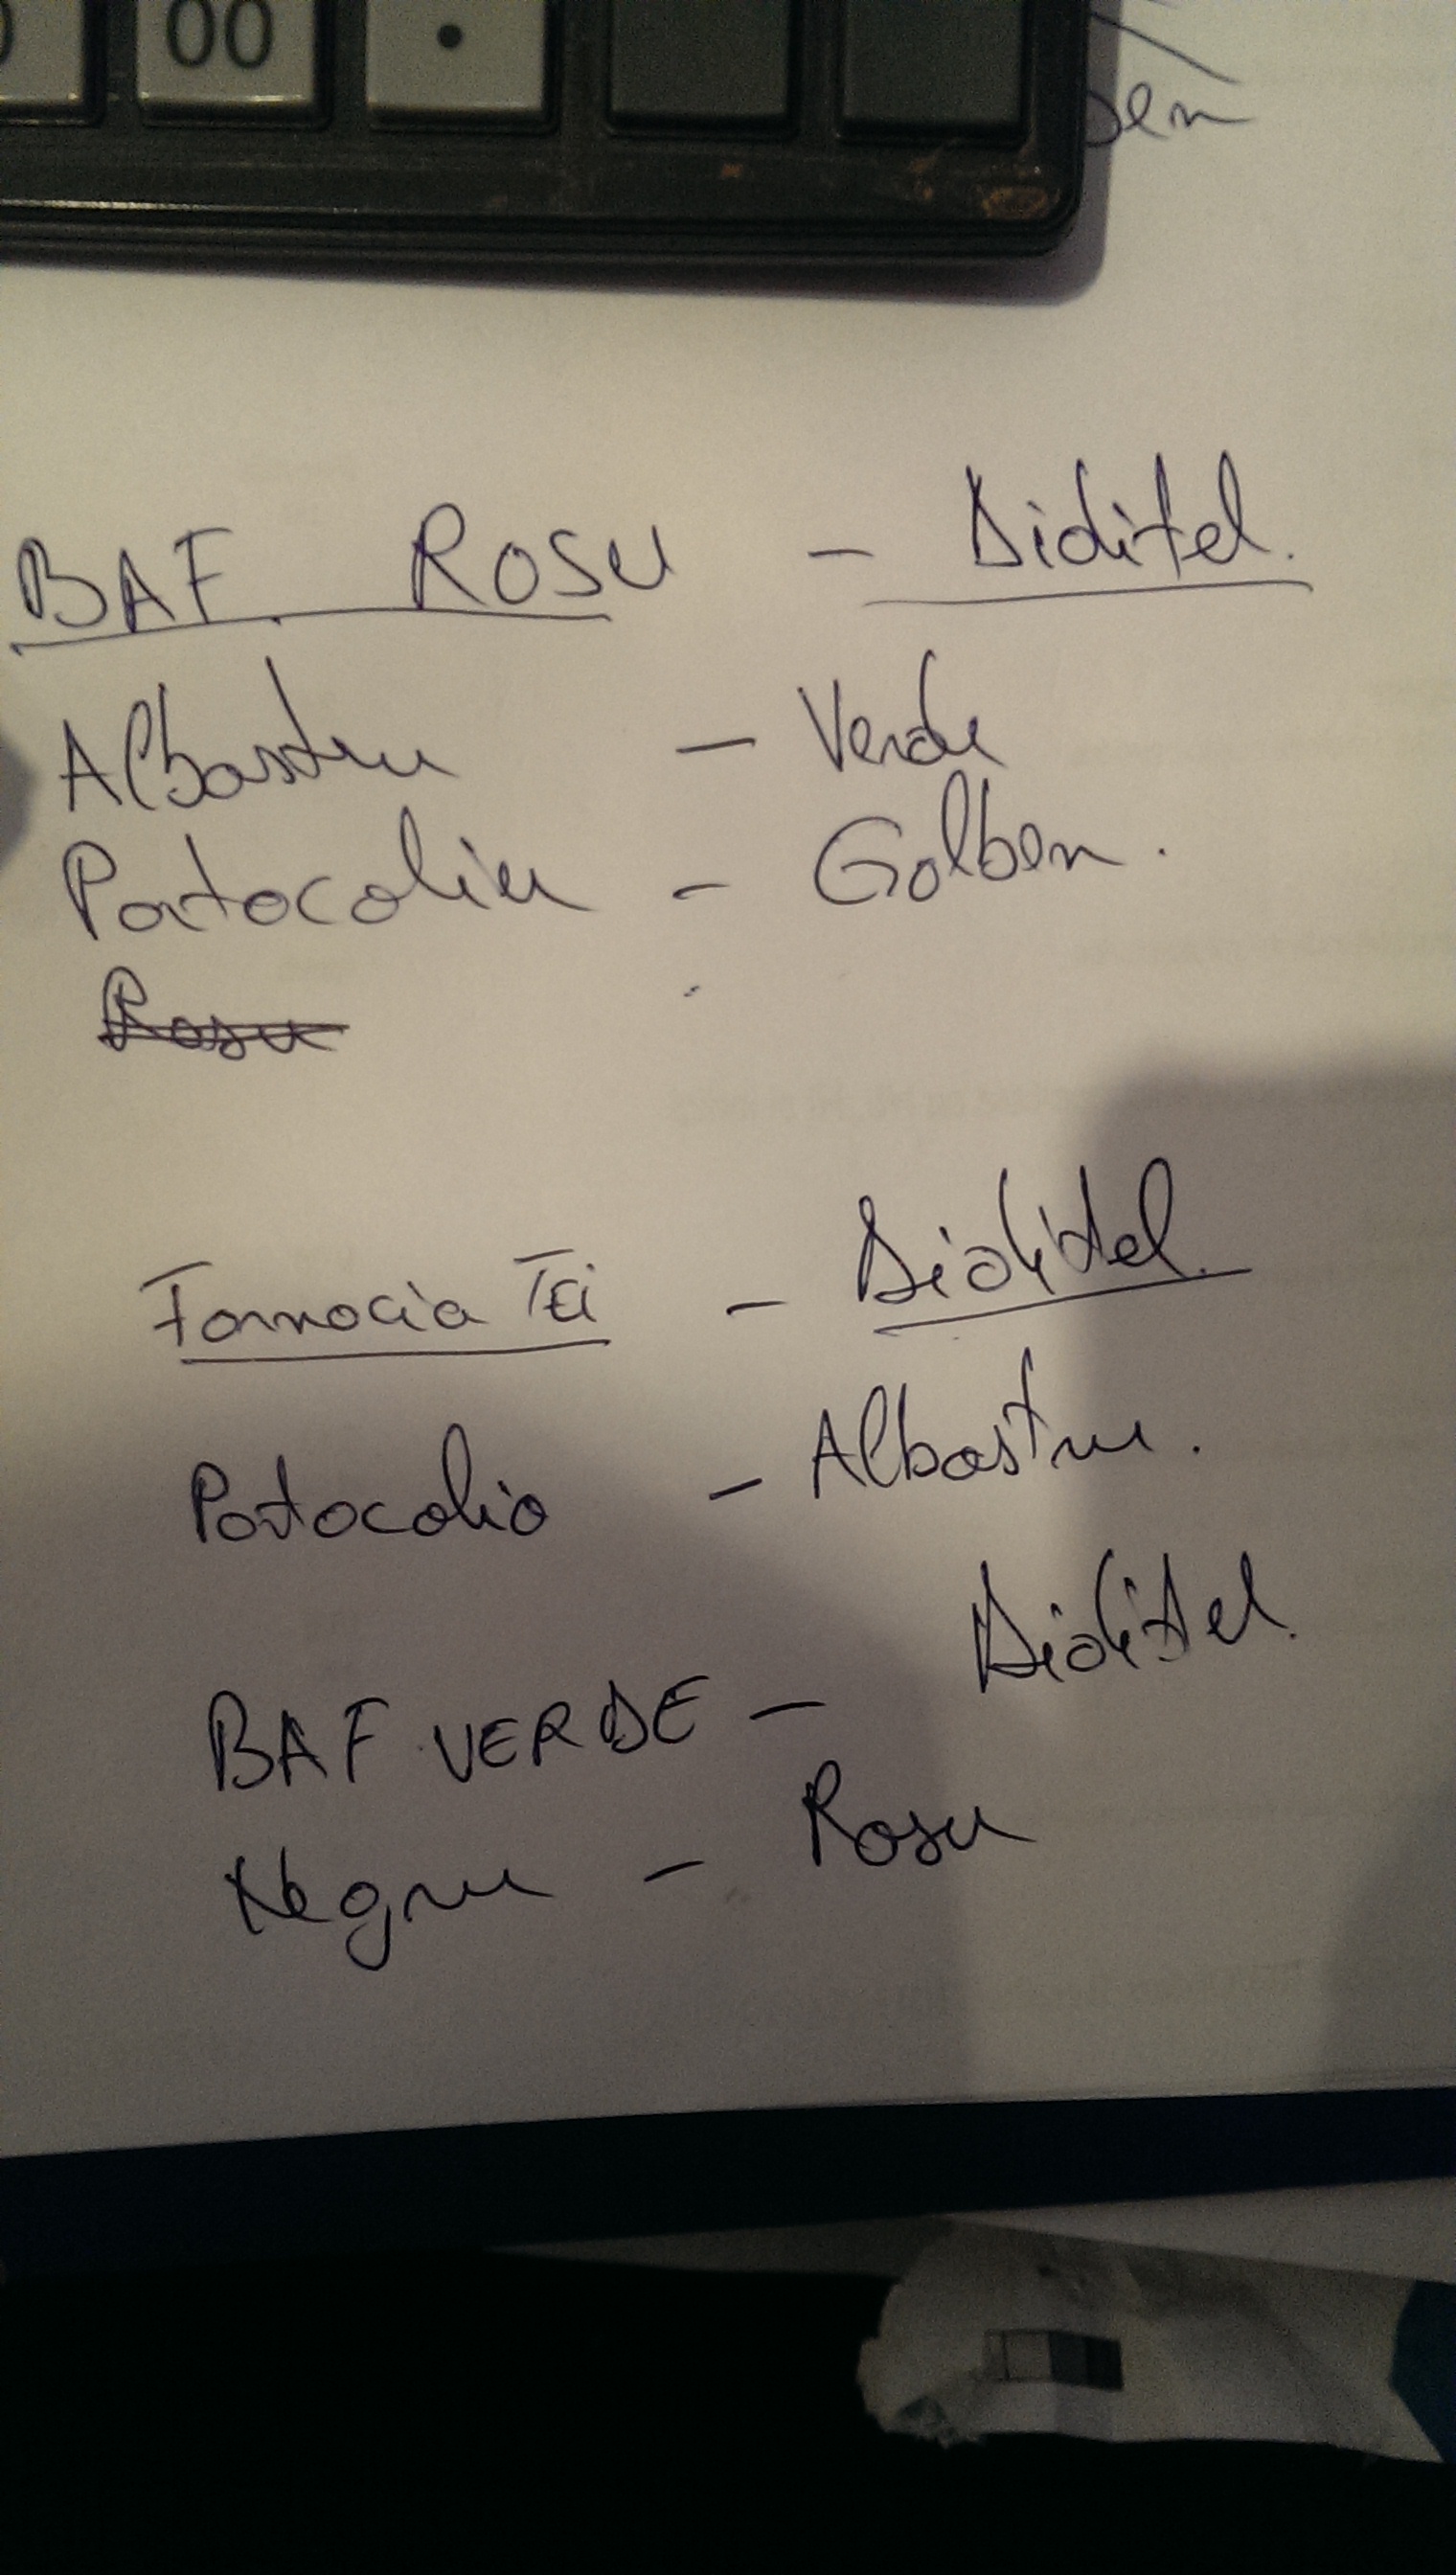 00 .
ben
BAF. ROSU - Diditel.
Albastru - Verde
Portocaliu - Galben.
Rosu
Farmacia Tei - Diditel.
Portocalio - Albastru.
Diditel.
BAF VERDE -
Negru - Rosu